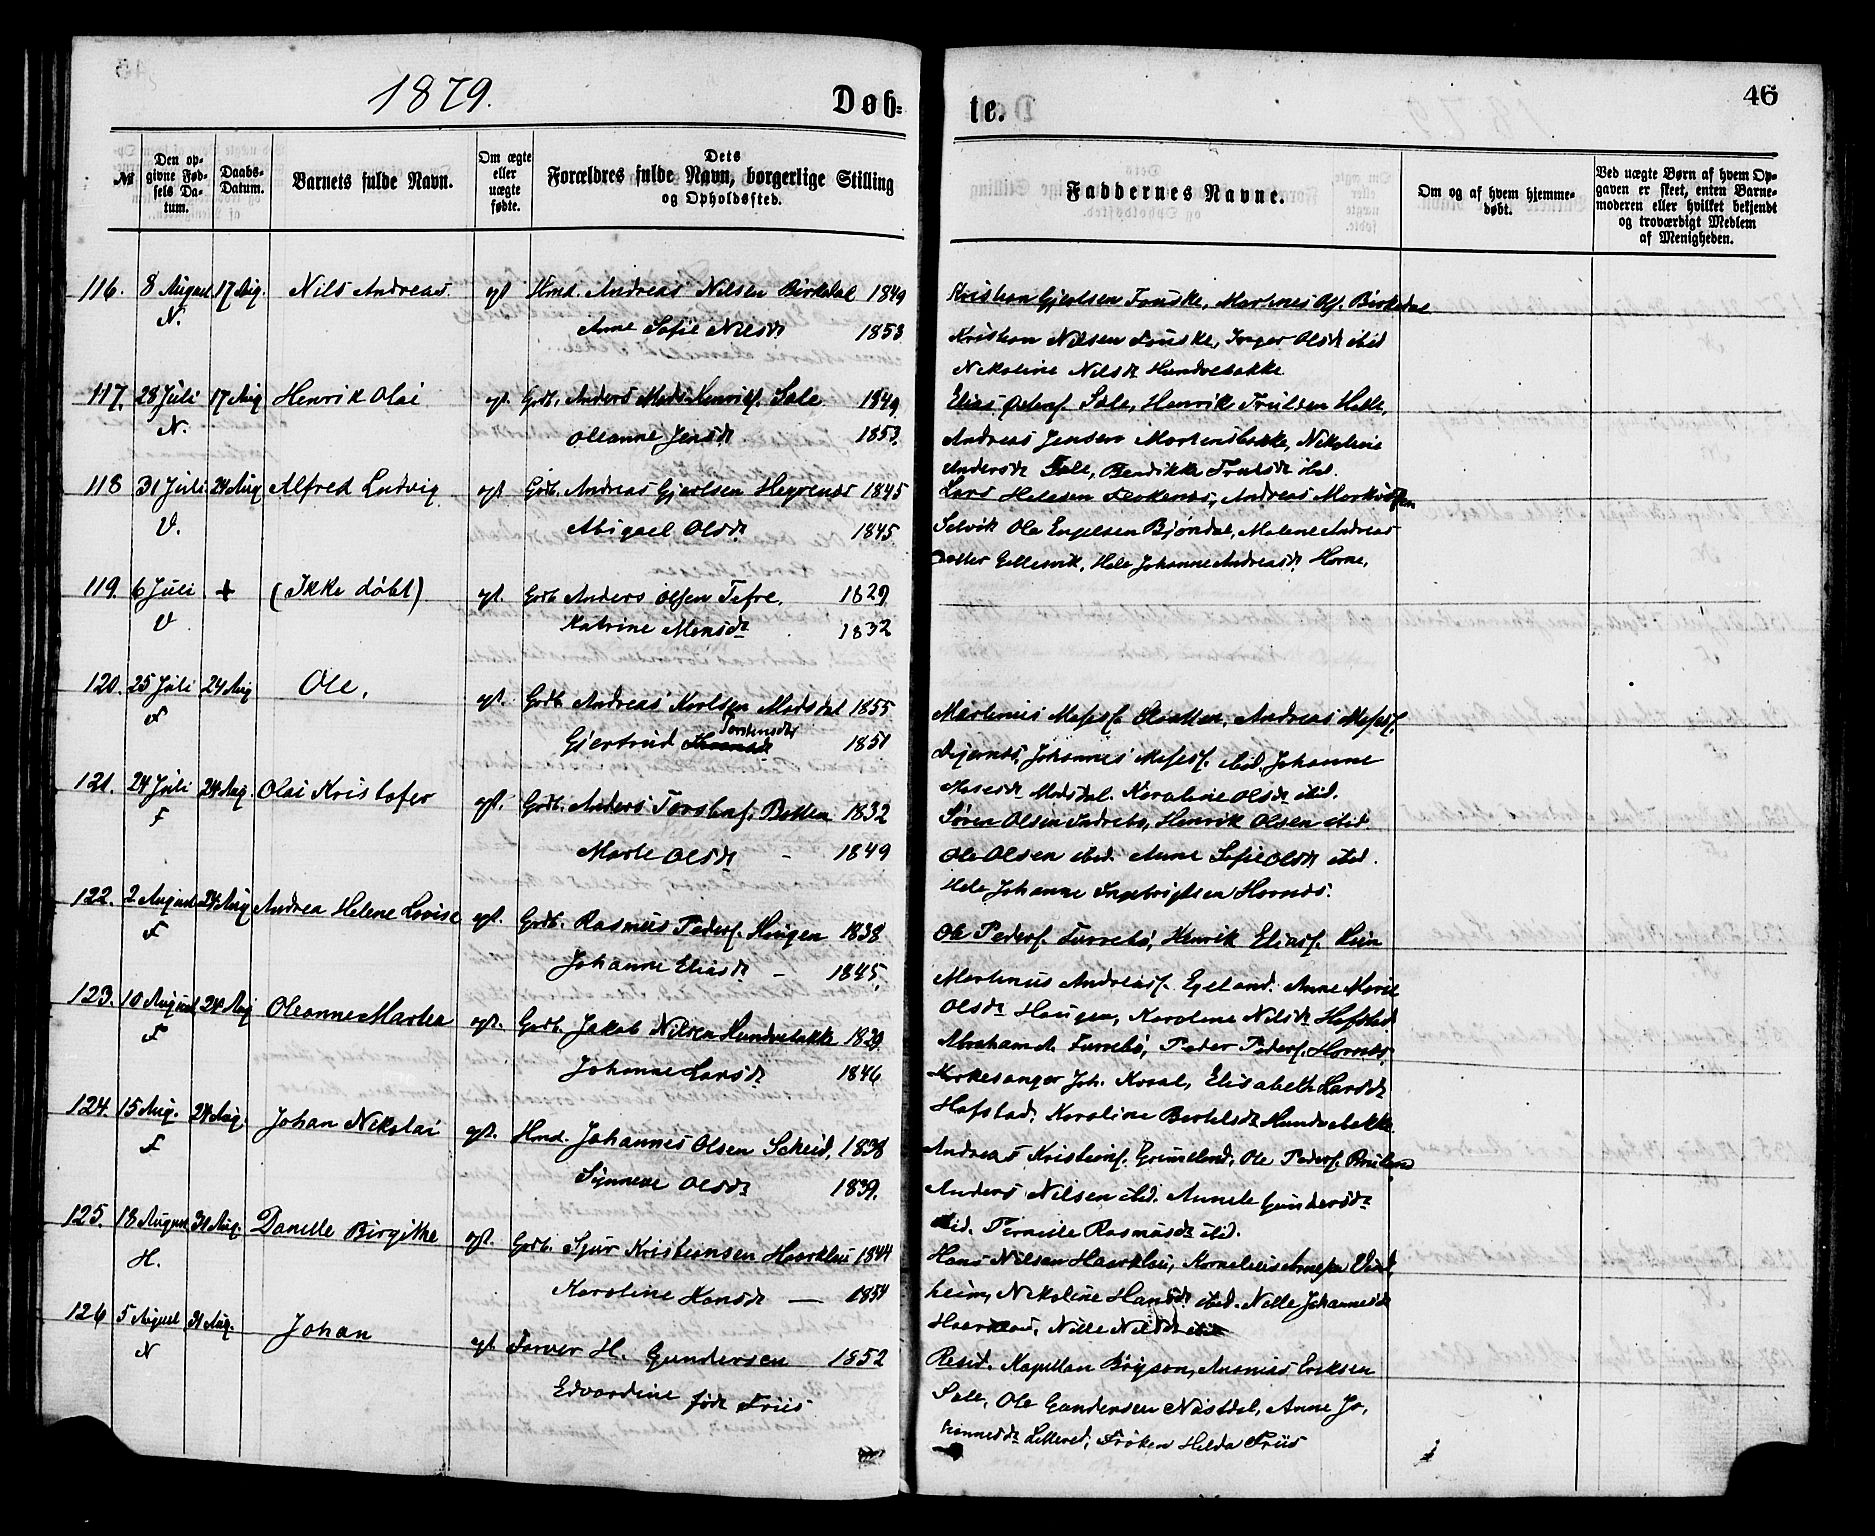 1879.
Døb-
te.
46
№
Den op-
givne Fød-
sels Da-
tum.
Daabs-
Datum.
Barnets fulde Navn.
Om ægte
eller
uægte
fødte.
Dets
Forældres fulde Navn, borgerlige Stilling
og Opholdssted.
Faddernes Navne.
Om og af hvem hjemme-
døbt.
Ved uægte Børn af hvem Op-
gaven er skeet, enten Barne-
moderen eller hvilket bekjendt
og troværdigt Medlem
af Menigheden.
116. 8 August 17 Aug. Nils Andreas. egt Hmd. Andreas Nilsen Birkedal 1849
N. Anne Sofie Nilsdr 1853
Kristian Gjertsen Fouske, Martines Ols. Birkedal
Kristian Nilsen Fouske, Inger Olsdr ibid
Nikoline Nilsdr Hundvebakke
117. 28 Juli 17 Aug Henrik Olai egt. Grdb. Anders Mads Henriks. Sale 1849
N. Oleanne Jensdr. 1853.
Elias Sale, Henrik Trulsen Hatle,
Andreas Jensen Martensbakke, Nikoline
Andersdr Sale, Bendikke Trulsdr ibid.
118 31 Juli 24 Aug Alfred Ludvig egt. Grdb. Andreas Gjertsen Hegrenes 1845
V. Abigael Olsdr. 1845
Lars Helgesen Flokenes, Andreas
Selvik Ole Engelsen Bjøndal, Malene Andreas
datter Gellesvik, Hele Johanne Andreasdr. Horne,
119. 6 Juli + (Ikke døbt) egt. Grdb Anders Olsen Tefre. 1829
V Katrine Monsdr 1832
120. 25 Juli 24 Aug Ole. egt. Grdb. Andreas Karlsen Modsdal 1855
F Gjertrud Torstensdtr 1851
Martinus Moses. Slaatten, Andreas Moses.
Johannes Moses. ibid. Johanne
Mosesdr Modsdal. Karoline Olsdr ibid.
121. 24 Juli 24 Aug. Olai Kristofer egt. Grdb. Anders Torstens. Botten 1832
F Marte Olsdr - 1849
Søren Olsen Indrebø, Henrik Olsen ibid.
Ole Olsen ibid. Anne Sofie Olsdr ibid.
Hele Johanne Ingebrigtsen Hornes.
122. 2 August 24 Aug Andrea Helene Lovise egt. Grdb. Rasmus Peders. Hougen 1838
F Johanne Eliasdr - 1845.
Ole Peders. Furrebø, Henrik Elias.
Martinus Andreas. Egeland. Anne Marie
Olsdr Haugen, Karolene Nilsdr Hafstad
123. 10 August 24 Aug Oleanne Martea egt. Grdb. Jakob Nilsen Hundvebakke 1839
F Johanne Larsdr 1846
Abraham A. Furrebø, Peder Peders. Hornes,
Kirkesanger Joh. Kvaal, Elisabeth Larsdr
Hafstad, Karoline Bertelsdr Hundvebakke.
124. 15 Aug. 24 Aug. Johan Nikolai egt. Hmd. Johannes Olsen Scheid, 1838
F Synneve Olsdr 1839.
Andreas Kristians. Grimelund, Ole Peders. Bruland
Anders Nilsen ibid. Annele Gundersdr
ibid. Pernille Rasmusdr ibid.
125. 18 August 31 Aug. Danelle Birgithe egt. Grdb. Sjur Kristiansen Haarklau 1844
H. Karoline Hansdr — 1854
Hans Nilsen Haarklau, Kornelius Arnesen Vind
heim, Nikoline Hansdr ibid. Nille Johannesdr
Haarklau, Nille Nilsdr
126 5 August 31 Aug. Johan egt Farver H. Gundersen 1852
N Edvardine født Friis
Resid. Kapellan Bøgson, Rasmus Eriksen
Sale, Ole Gundersen Nistdal, Anne Jo,
hannesdr Lillered, Frøken Hilda Friis